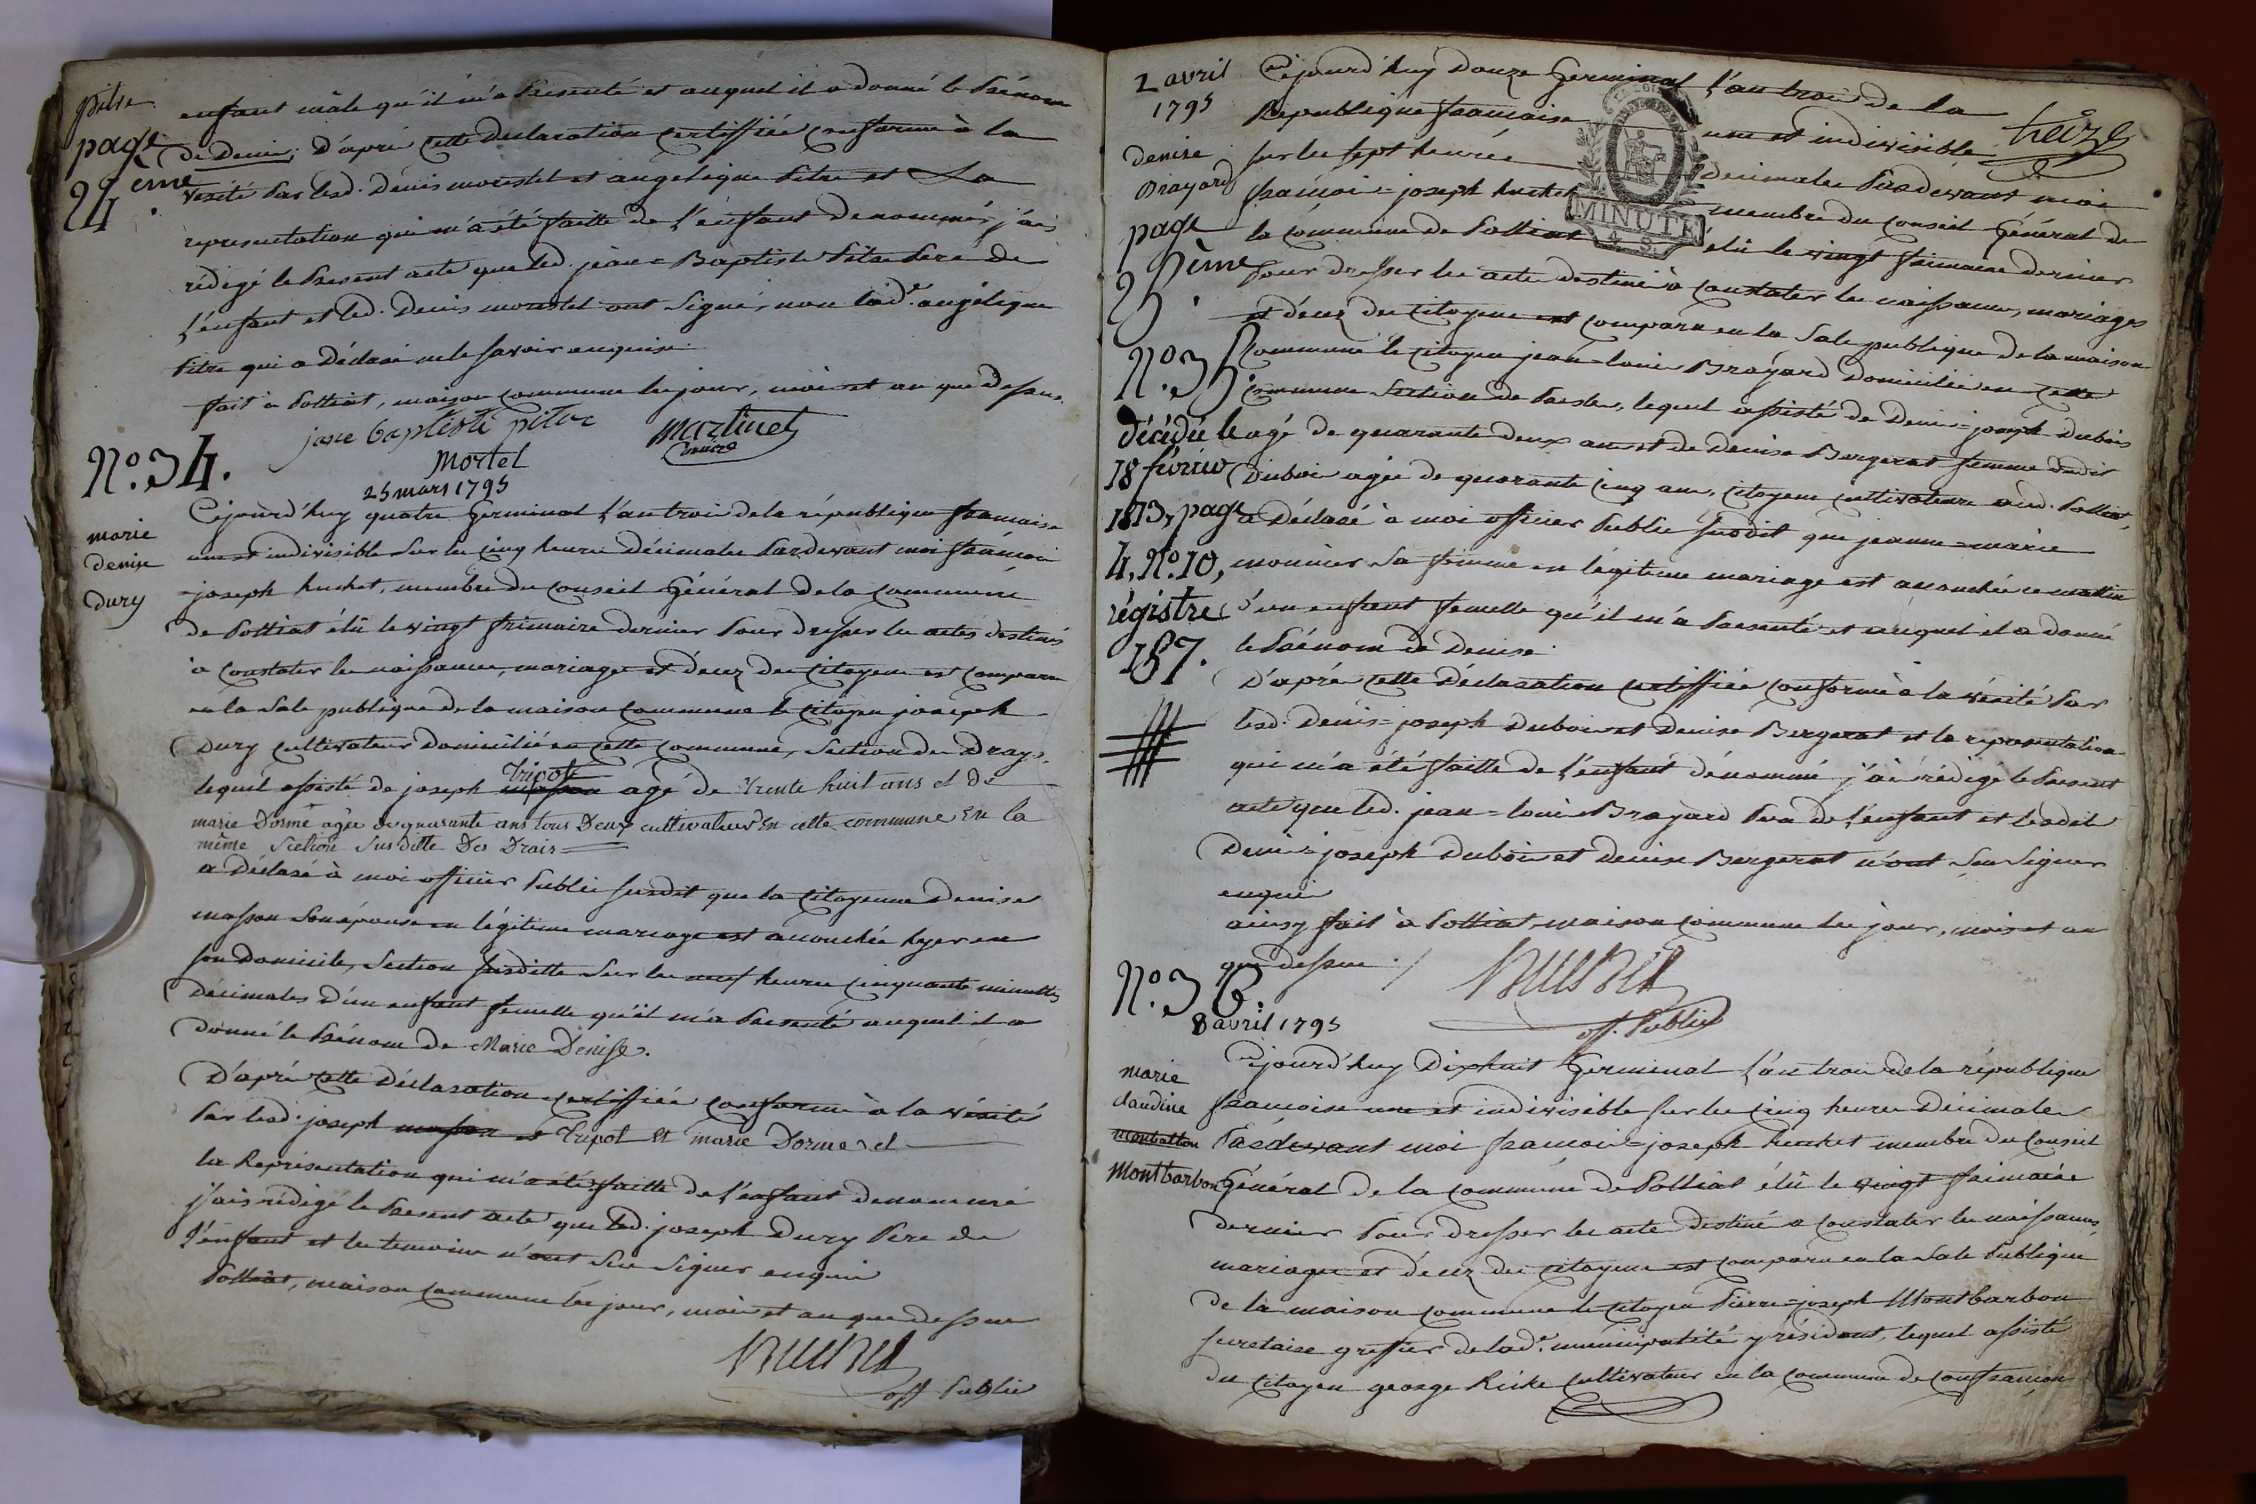 pitre
page
24ème.
enfant mâle qu'il m'a Présenté et auquel il a donné le Prénom
de Denis, D'après cette déclaration certiffiée conforme à la
vérité Par lesd. Denis mortel et angelique Pitre et La
représentation qui m'a été faitte de l'enfant denommé, j'ai
rédigé le Présent acte que led. jean=Baptiste Pitre Pere de
L'enfant et led. Denis mortel ont Signé, non ladte. angélique
Pitre qui a Déclaré ne le Savoir enquise.
fait à Polliat, maison commune les jour, mois et an que Dessus.
jane baptiste pitre
martinet
maire
mortel
N.o 34.
25 mars 1795
marie
denise
Dury
Cejourd'huy quatre Germinal l'an trois de la république française
une et indivisible Sur les cinq heures Décimales Pardevant moi françois
=joseph huchet, membre du Conseil Général de la Commune
de Polliat élû le vingt frimaire dernier Pour dresser les actes destinés
à constater les naissances, mariages et décez des citoyens est comparu
en la Sale publique de la maison commune le citoyen joseph
Dury cultivateur Domicilié en cette commune, Section des Drays,
Tripot
lequel assisté de joseph masson agé de trente huit ans et de
marie Dorme agée de quarante ans tous Deux cultivateurs En cette commune En la
même Section Sus ditte Des Drais
a Déclaré à moi officier Public Susdit que la Citoyenne Denise
masson Son épouse en légitime mariage est accouchée hyer en
Son Domicile, Section Susditte Sur les neuf heures cinquante minuttes
Décimales d'un enfant femelle qu'il m'a Présenté auquel il a
donné le Prénom De Marie Denise.
D'après cette Déclaration certiffiée conforme à la vérité
Par lesd. joseph masson et Tripot Et marie Dorme et
la Représentation qui m'a été faitte de l'enfant denommé
j'ais rédigé le Présent acte que led. joseph Dury Pere de
L'enfant et les temoins n'ont Sçu Signer enquis
Polliat, maison commune les jour, mois et an que Dessus
huchet
off Public
2 avril
1795
denise
Brayard
page
25ème.
Cejourd'huy Douze Germinal l'an trois de la
Republique française une et indivisible
treize
Sur les Sept heures Décimales Pardevant moi
françois=joseph huchet membre du conseil Général de
MINUTE
4. S.
la commune de Polliat élû le vingt frimaire dernier
Pour dresser les actes destinés à constater les naissances, mariages
et décez des citoyens est comparu en la Sale publique de la maison
N.o 35.
Commune le citoyen jean=louis Brayard Domicilié en cette
commune Section de Presle, lequel assisté de Denis=joseph Dubois
décédée le
18 février
1873, page
4, N.o 10,
régistre
187.
agé de quarante deux ans et de Denise Bergerat femme dudit
Dubois agée de quarante cinq ans, citoyens cultivateurs aud. Polliat,
a Déclaré à moi officier Public Susdit que jeanne=marie
monnier Sa femme en légitime mariage est accouchée ce matin
d'un enfant femelle qu'il m'a Présenté et auquel il a donné
le Prénom de Denise.
D'après cette Déclaration certiffiée conforme à la vérité Par
lesd. Denis=joseph Dubois et Denise Bergerat et la représentation
qui m'a été faitte de l'enfant dénommé j'ai rédigé le Présent
acte que led. jean=louis Brayard Pere de l'enfant et lesdit
Denis=joseph Dubois et Denise Bergerat n'ont Sçu Signer
enquis
ainsy fait à Polliat, maison commune les jour, mois et an
que dessus ./
huchet
off. Public
N.o 36.
8 avril 1795
marie
claudine
Montbarbon
Cejourd'huy Dixhuit Germinal l'an trois de la république
française une et indivisible Sur les cinq heures Décimales
Pardevant moi françois=joseph huchet membre du Conseil
Général de la commune de Polliat élû le vingt frimaire
dernier Pour dresser les actes destinés a constater les naissances,
mariages et décez des citoyens est comparu en la Sale Publique
de la maison commune le citoyen Pierre=joseph Montbarbon
Secretaire greffier de ladte. municipalité y résidant, lequel assisté
du Citoyen george cultivateur en la commune de confrançon